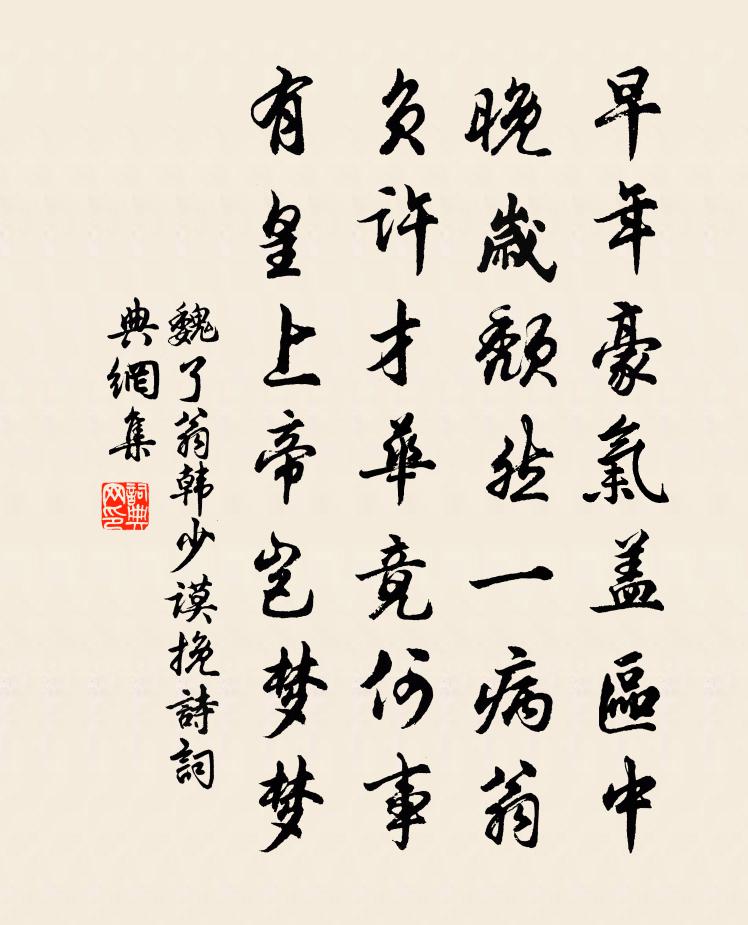 早年豪氣盖區中
晚歲頹然一病翁
負許才華竟何事
有皇上帝豈梦梦
魏了翁韩少谟挽詩詞
典網集
詞典网印